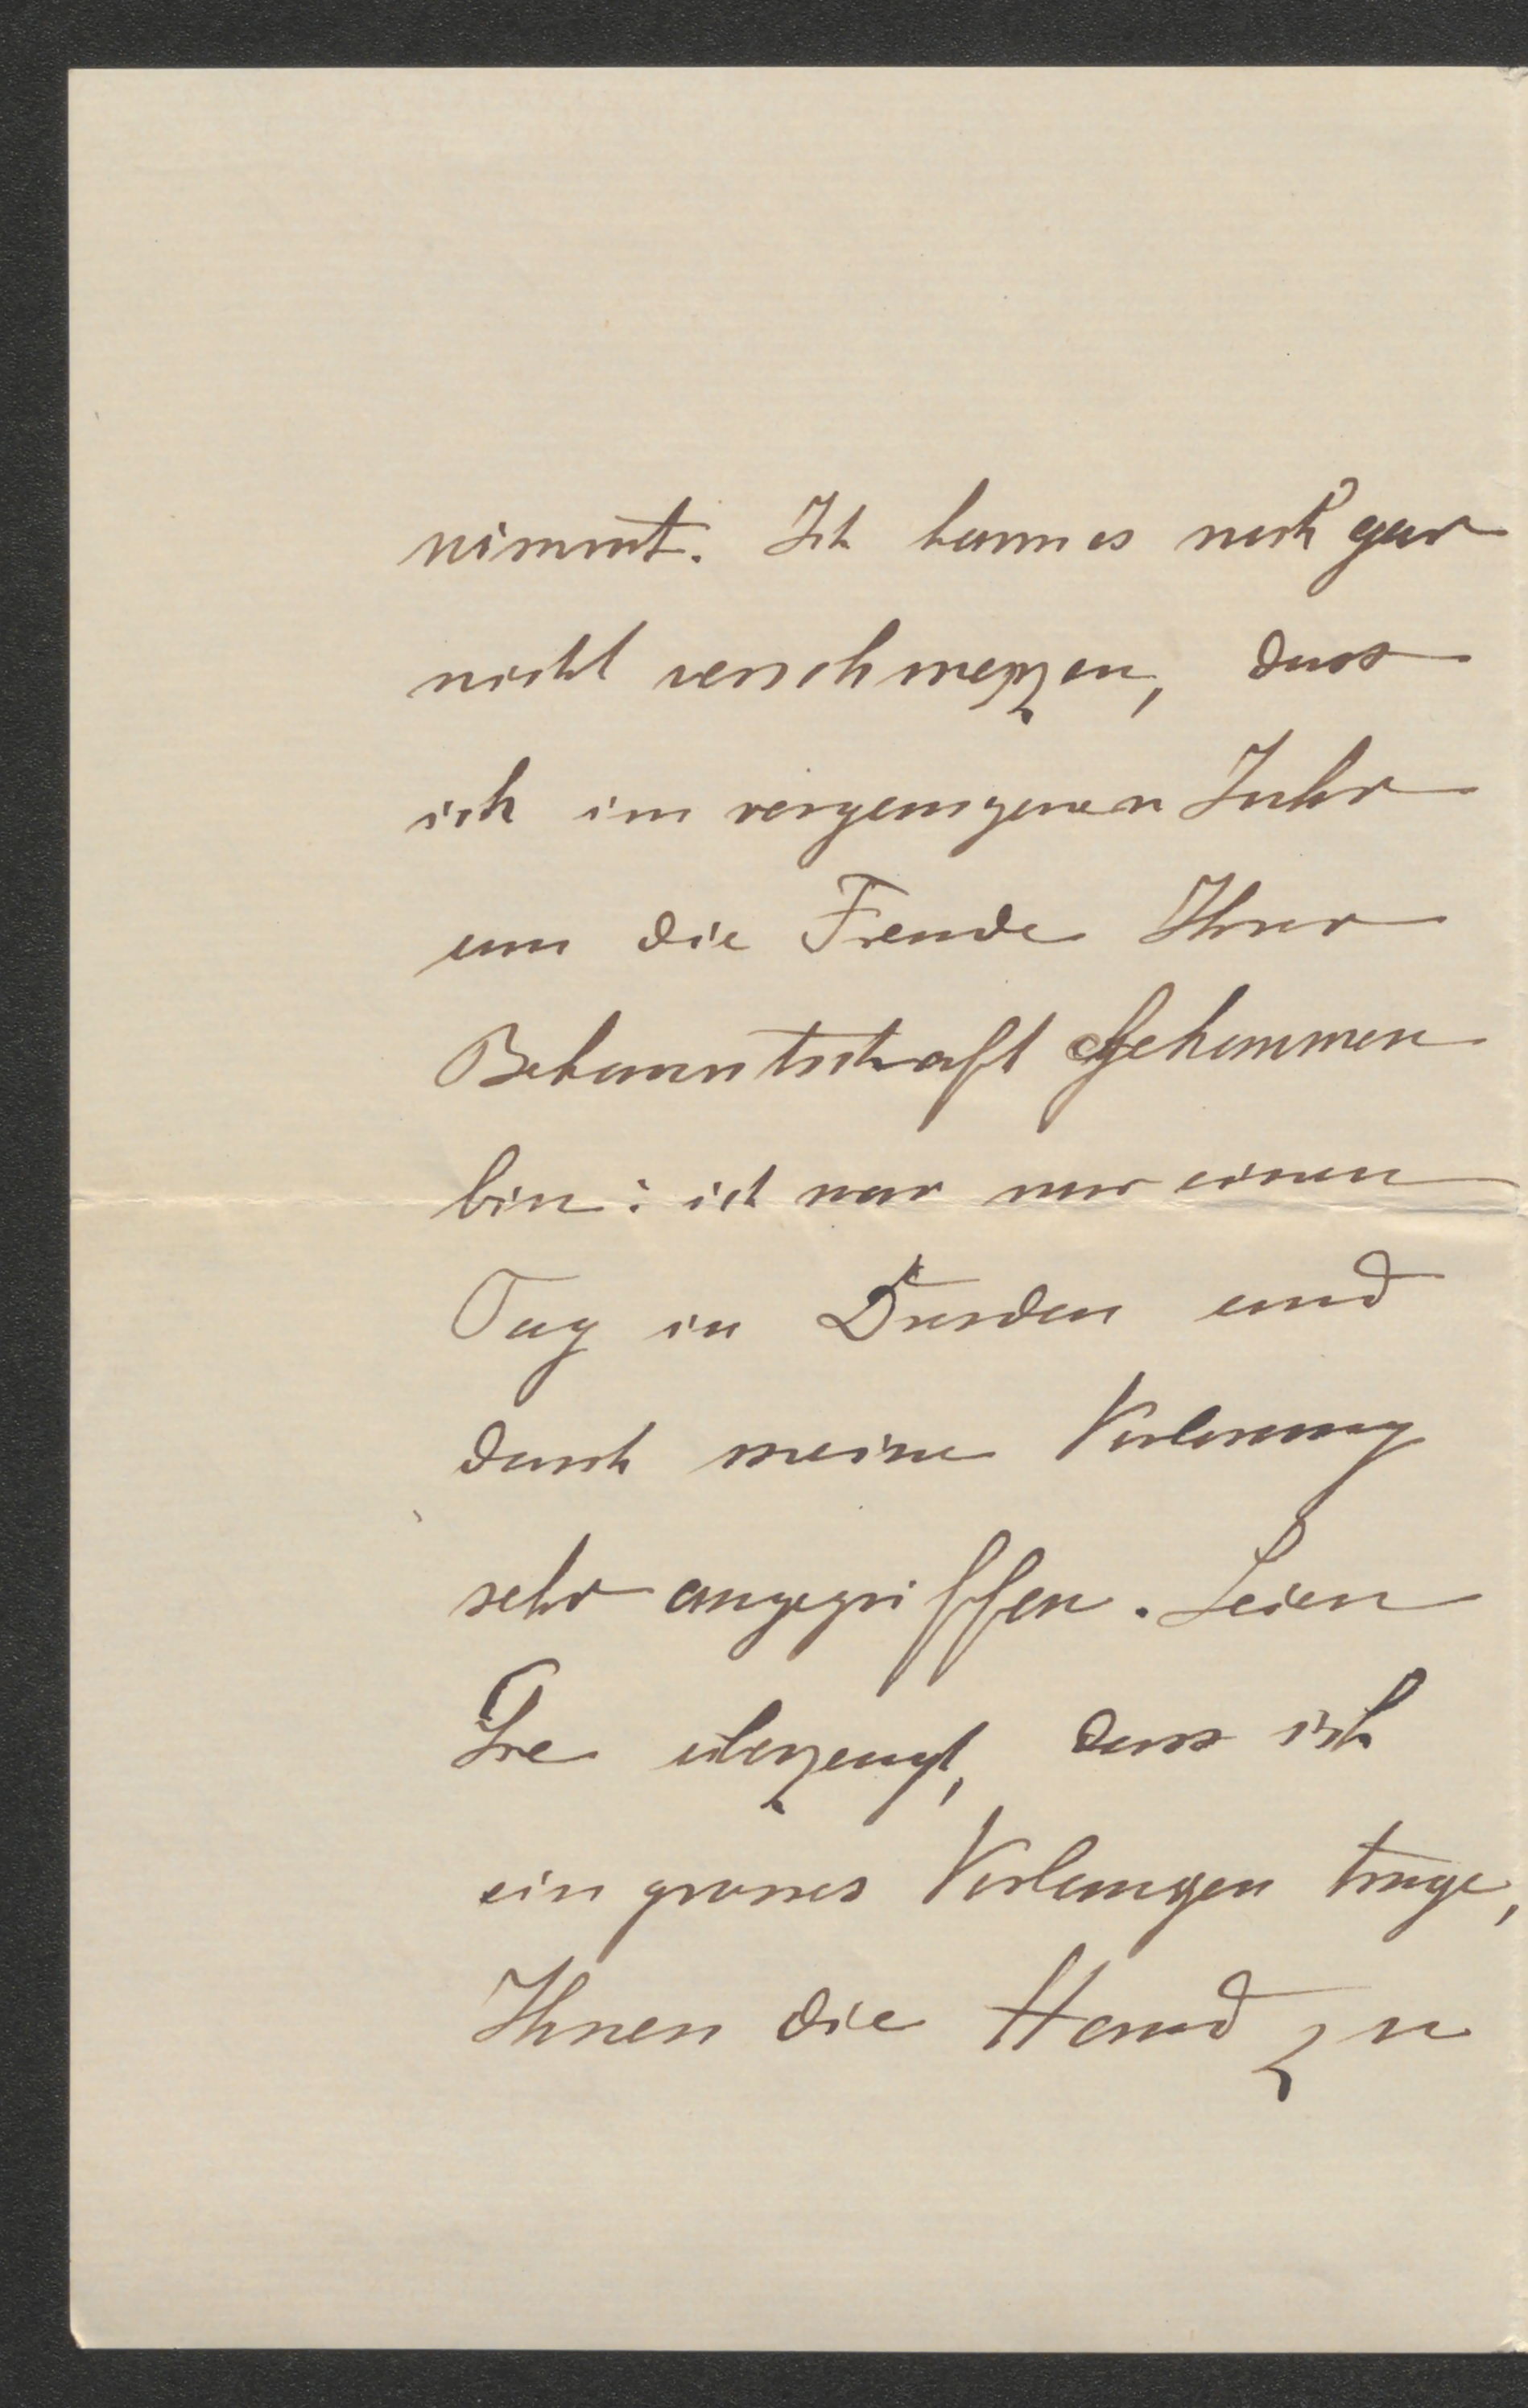 nimmt. Ich kann es noch gar
nicht verschmerzen, dass
ich im vergangenen Jahr
um die Freude Ihrer
Bekanntschaft gekommen
bin: ich war nur einen
Tag in Dresden und
durch meine Vorlesung
sehr angegriffen. Seien
Sie überzeugt, dass ich
ein grosses Verlangen trage,
Ihnen die Hand zu